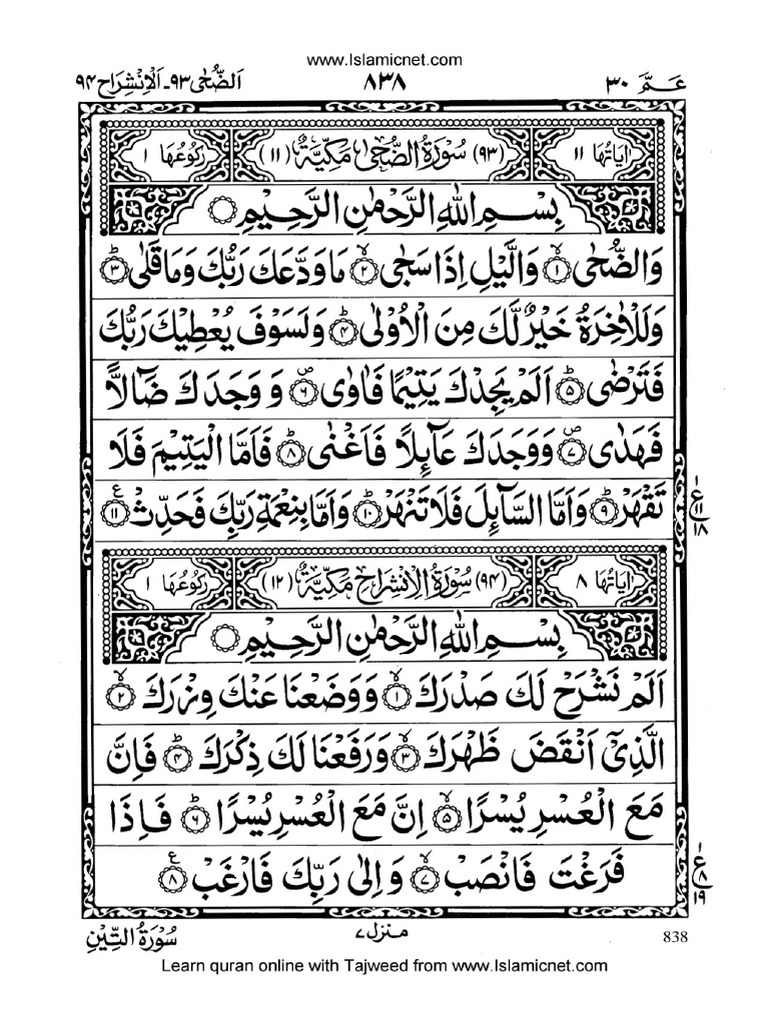 www.Islamicnet.com
عَـمَّ ٣٠ ٨٣٨ اَلضُّحٰى ٩٣ـ اَلْاِنْشِرَاح ٩٤
اٰيَاتُهَا ١١ (٩٣) سُوْرَةُ الضُّحٰى مَكِّيَّةٌ (١١) رُكُوْعُهَا ١
بِسْمِ اللّٰهِ الرَّحْمٰنِ الرَّحِيْمِ
وَالضُّحٰى ۙ‏﴿۱﴾ وَالَّيْلِ اِذَا سَجٰى ۙ‏﴿۲﴾ مَا وَدَّعَكَ رَبُّكَ وَمَا قَلٰى ؕ‏﴿۳﴾
وَلَلْاٰخِرَةُ خَيْرٌ لَّكَ مِنَ الْاُوْلٰى ؕ‏﴿۴﴾ وَلَسَوْفَ يُعْطِيْكَ رَبُّكَ
فَتَرْضٰى ؕ‏﴿۵﴾ اَلَمْ يَجِدْكَ يَتِيْمًا فَاٰوٰى ۖ‏﴿۶﴾ وَ وَجَدَكَ ضَآلًّا
فَهَدٰى ۖ‏﴿۷﴾ وَوَجَدَكَ عَآئِلًا فَاَغْنٰى ؕ‏﴿۸﴾ فَاَمَّا الْيَتِيْمَ فَلَا
تَقْهَرْ ؕ‏﴿۹﴾ وَاَمَّا السَّآئِلَ فَلَا تَنْهَرْ ؕ‏﴿۱۰﴾ وَاَمَّا بِنِعْمَةِ رَبِّكَ فَحَدِّثْ ﴿۱۱﴾ع
١
ع ١١
١٨
اٰيَاتُهَا ٨ (٩٤) سُوْرَةُ الْاِنْشِرَاحِ مَكِّيَّةٌ (١٢) رُكُوْعُهَا ١
بِسْمِ اللّٰهِ الرَّحْمٰنِ الرَّحِيْمِ
اَلَمْ نَشْرَحْ لَكَ صَدْرَكَ ۙ‏﴿۱﴾ وَوَضَعْنَا عَنْكَ وِزْرَكَ ۙ‏﴿۲﴾
الَّذِىْۤ اَنْقَضَ ظَهْرَكَ ۙ‏﴿۳﴾ وَرَفَعْنَا لَكَ ذِكْرَكَ ؕ‏﴿۴﴾ فَاِنَّ
مَعَ الْعُسْرِ يُسْرًا ۙ‏﴿۵﴾ اِنَّ مَعَ الْعُسْرِ يُسْرًا ؕ‏﴿۶﴾ فَاِذَا
فَرَغْتَ فَانْصَبْ ۙ‏﴿۷﴾ وَاِلٰى رَبِّكَ فَارْغَبْ ﴿۸﴾ع
١
ع ٨
١٩
838 منزل٧ سُوْرَةُ التِّيْنِ
Learn quran online with Tajweed from www.Islamicnet.com